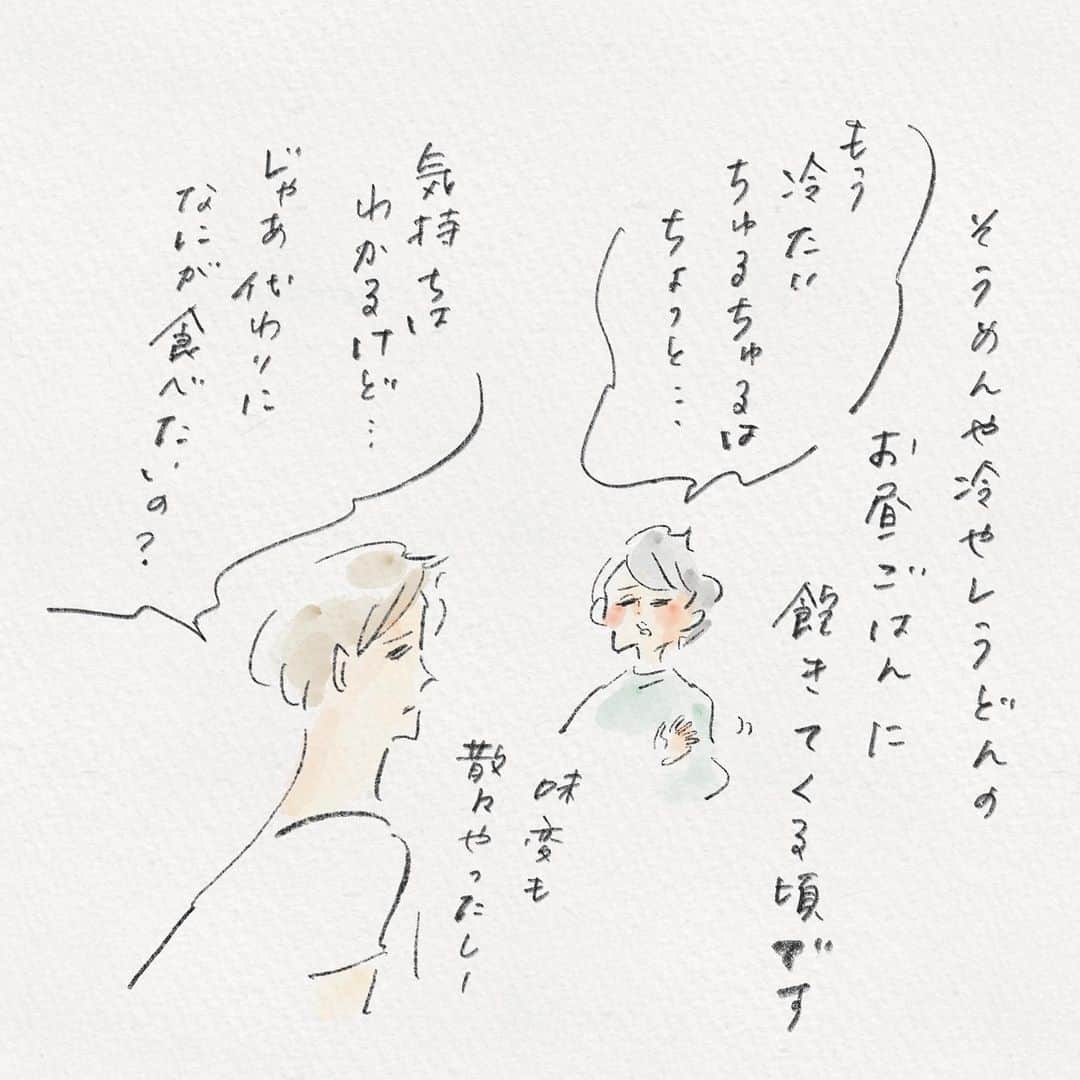 そうめんや冷やしうどんの
お昼ごはんに
飽きてくる頃です
もう
冷たい
ちゅるちゅるは
ちょっと…
味変も
散々やったしー
気持ちは
わかるけど…
じゃあ代わりに
なにが食べたいの?